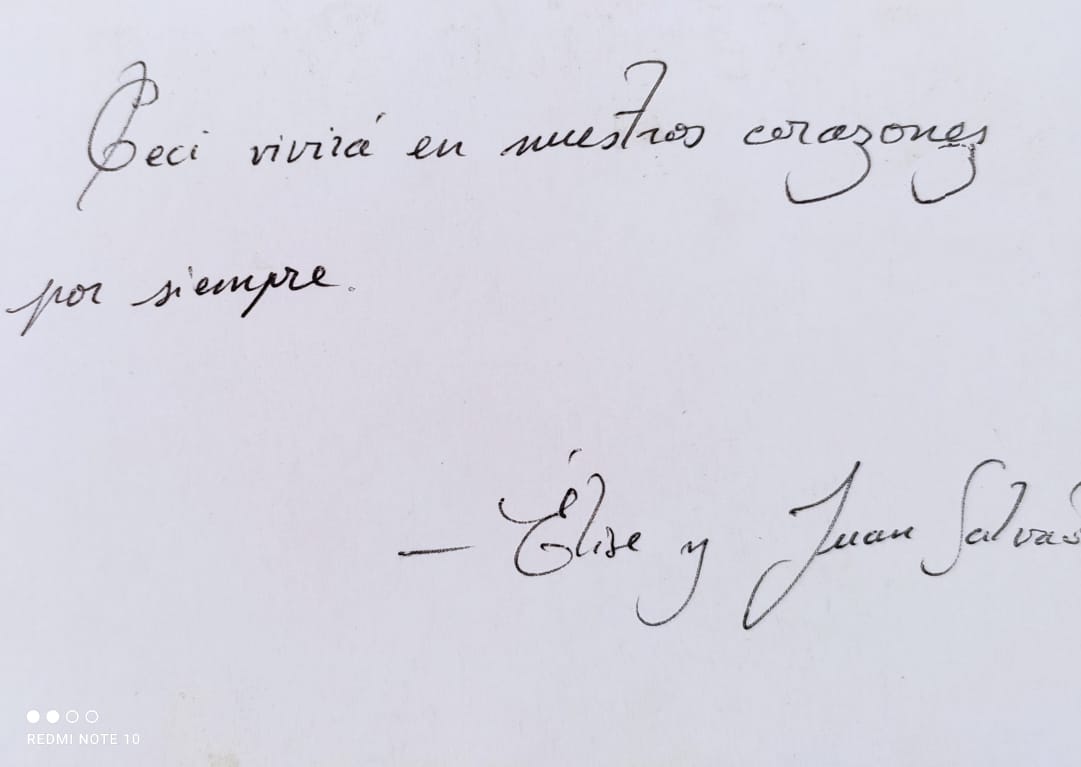 Ceci vivirá en nuestros corazones
por siempre.
— Élise y Juan Salvad
REDMI NOTE 10